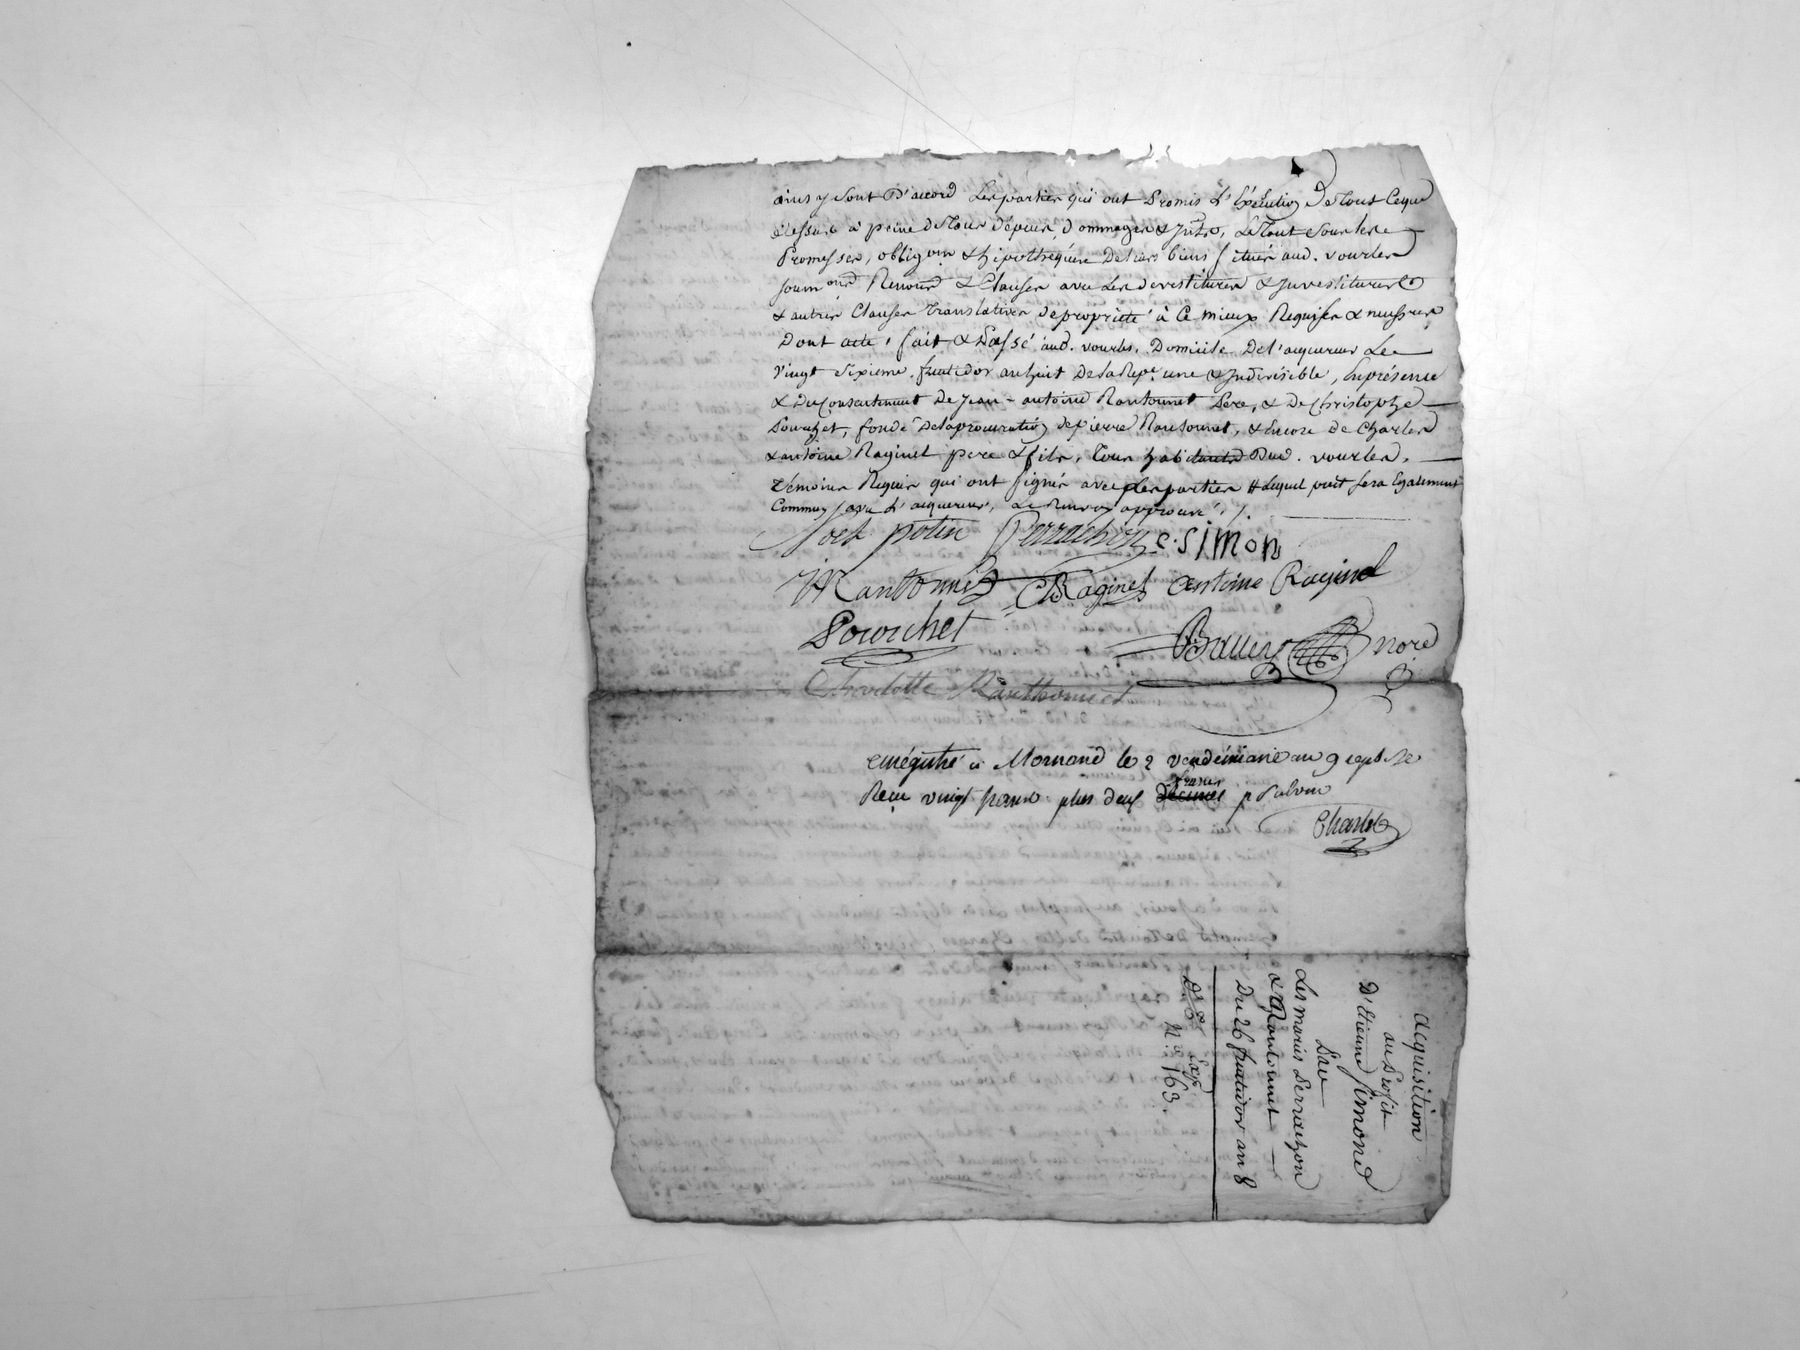 ainsy sont d'accord les parties qui ont promis l'Exécution de tout ce que
dessus à peine de tous dépens, dommages & Intrs, le tout sous les
Promesses, obligons & hipothèques de leurs biens situés aud. vourles
soumons Renond & Clauses avec les devestitures & Investitures
& autres Clauses translatives de propriété à ce mieux Requises & necessres
Dont acte, fait & Passé aud. vourles, Domicile De l'acquereur Le
vingt sixieme fructidor an huit De la Repe une & Indivisible, En présence
& du Consentement De Jean-antoine Rantonnet Pere, & De Christophe
Pourchet, fondé De la procuration de pierre Rantonnet, & Encore de Charles
& antoine Raginel pere & fils, tous habitants Dud. vourles,
témoins Requis qui ont signés avec les parties # lequel puit sera Egalement
Commun avec l'acquereur, le Renvoy approuvé ./.
potin Perrachon e. simon
Rantonnet C Raginel antoine Raginel
Pourchet
nore
Charlotte Ranthonnet
enrégistré à Mornand le 2 vendémiaire an 9 Republ.
Reçu vingt francs plus deux francs décimes p
Charlet
acquisition
au Profit
D'Etienne Simond
Par
Les mariés Perrachon
& Rantonnet
Du 26 fructidor an 8
No. 163.